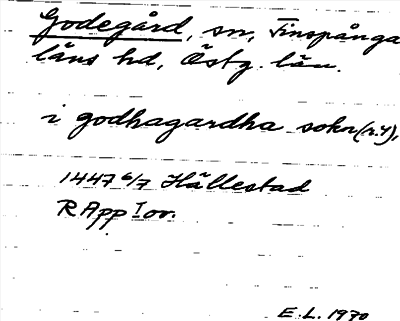 Godegård, sn, Finspånga
läns hd, Östg. län.
i godhagardha sokn (r.4),
1447 6/7 Hällestad
R App I or.
E.L. 1970